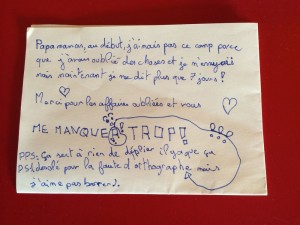 Papa maman, au début, j'aimais pas ce camp parce
que j'avais oublié des choses et je m'ennuyais
mais maintenant je me dit plus que 7 jours!
Merci pour les affaires oubliées et vous
ME MANQUER TROP!
PPS: Ça sert à rien de déplier il y a que ça
PS: désolé pour la faute d'orthographe mais
j'aime pas